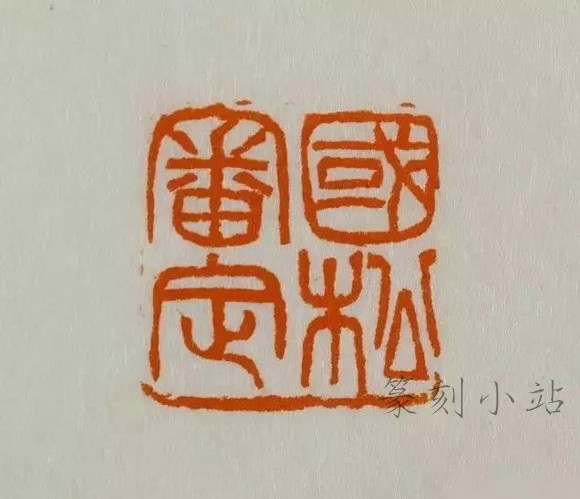 國松
審定
篆刻小站